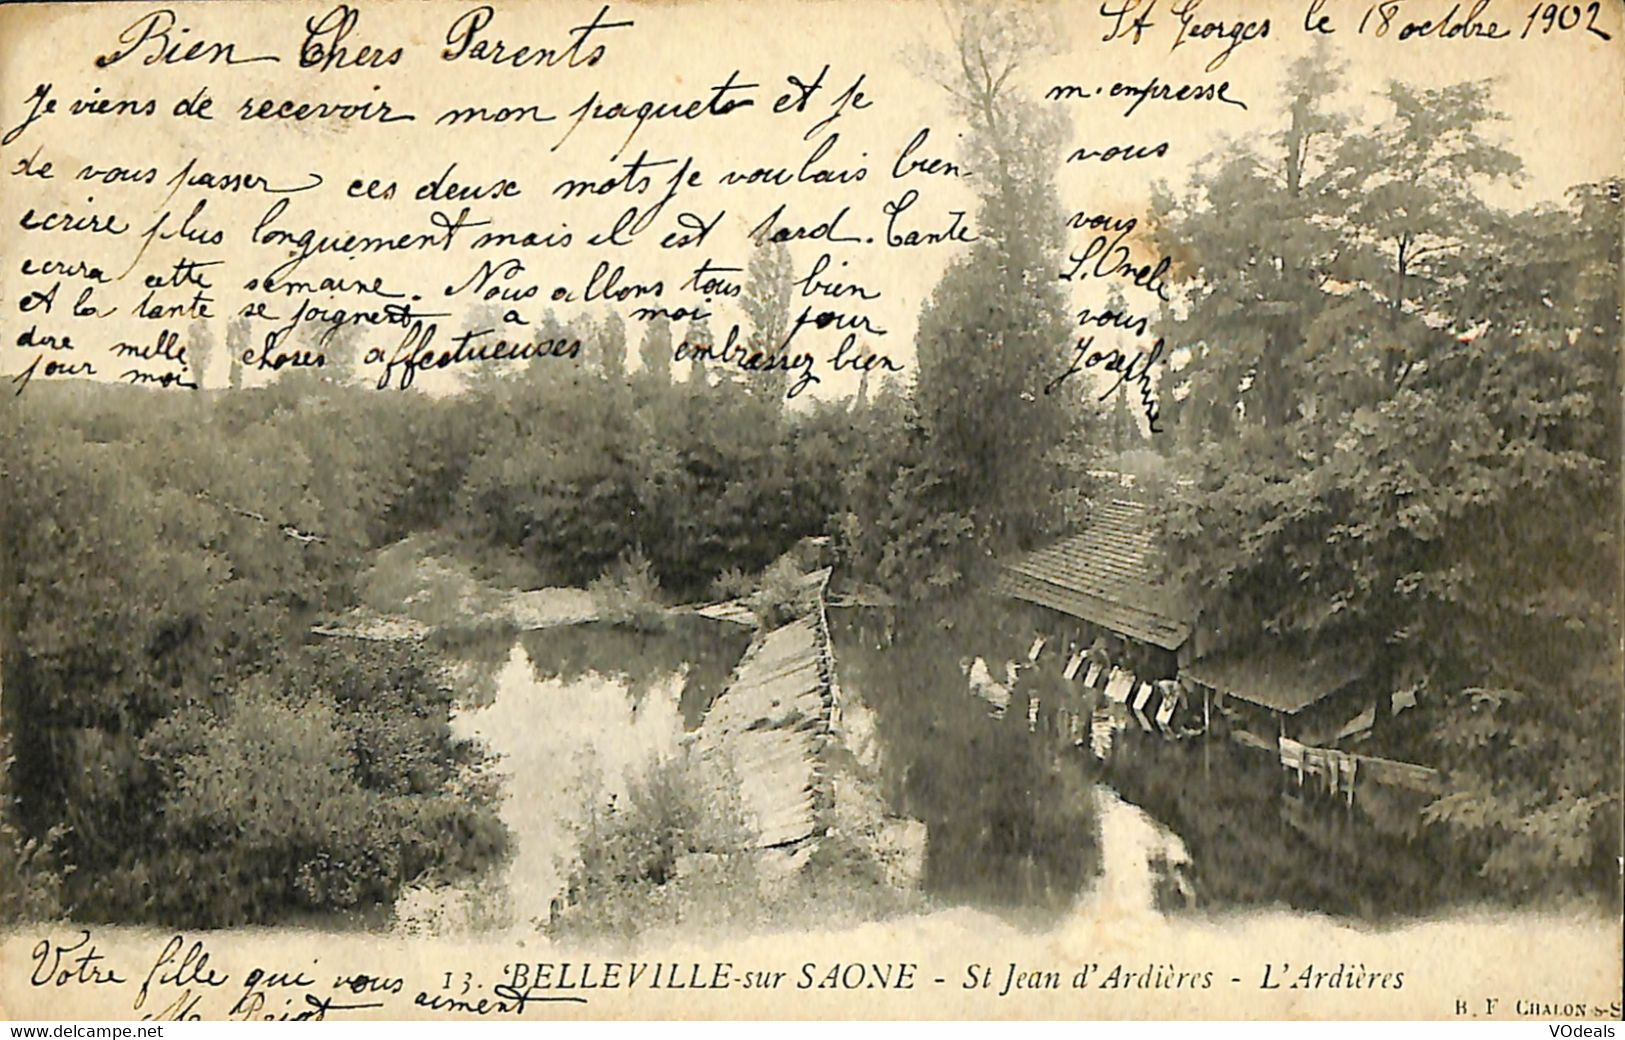 St Georges le 18 octobre 1902
Bien Chers Parents
Je viens de recevoir mon paquet et je m'empresse
de vous passer ces deux mots je voulais bien vous
ecrire plus longuement mais il est tard. Tante vous
ecrira cette semaine. Nous allons tous bien L'Oncle
et la tante se joignent a moi pour vous
dire mille choses affectueuses embrassez bien Josephine
pour moi
Votre fille qui vous aiment
13. BELLEVILLE-sur SAONE - St Jean d'Ardières - L'Ardières
B. F. CHALON-S-S
VOdeals